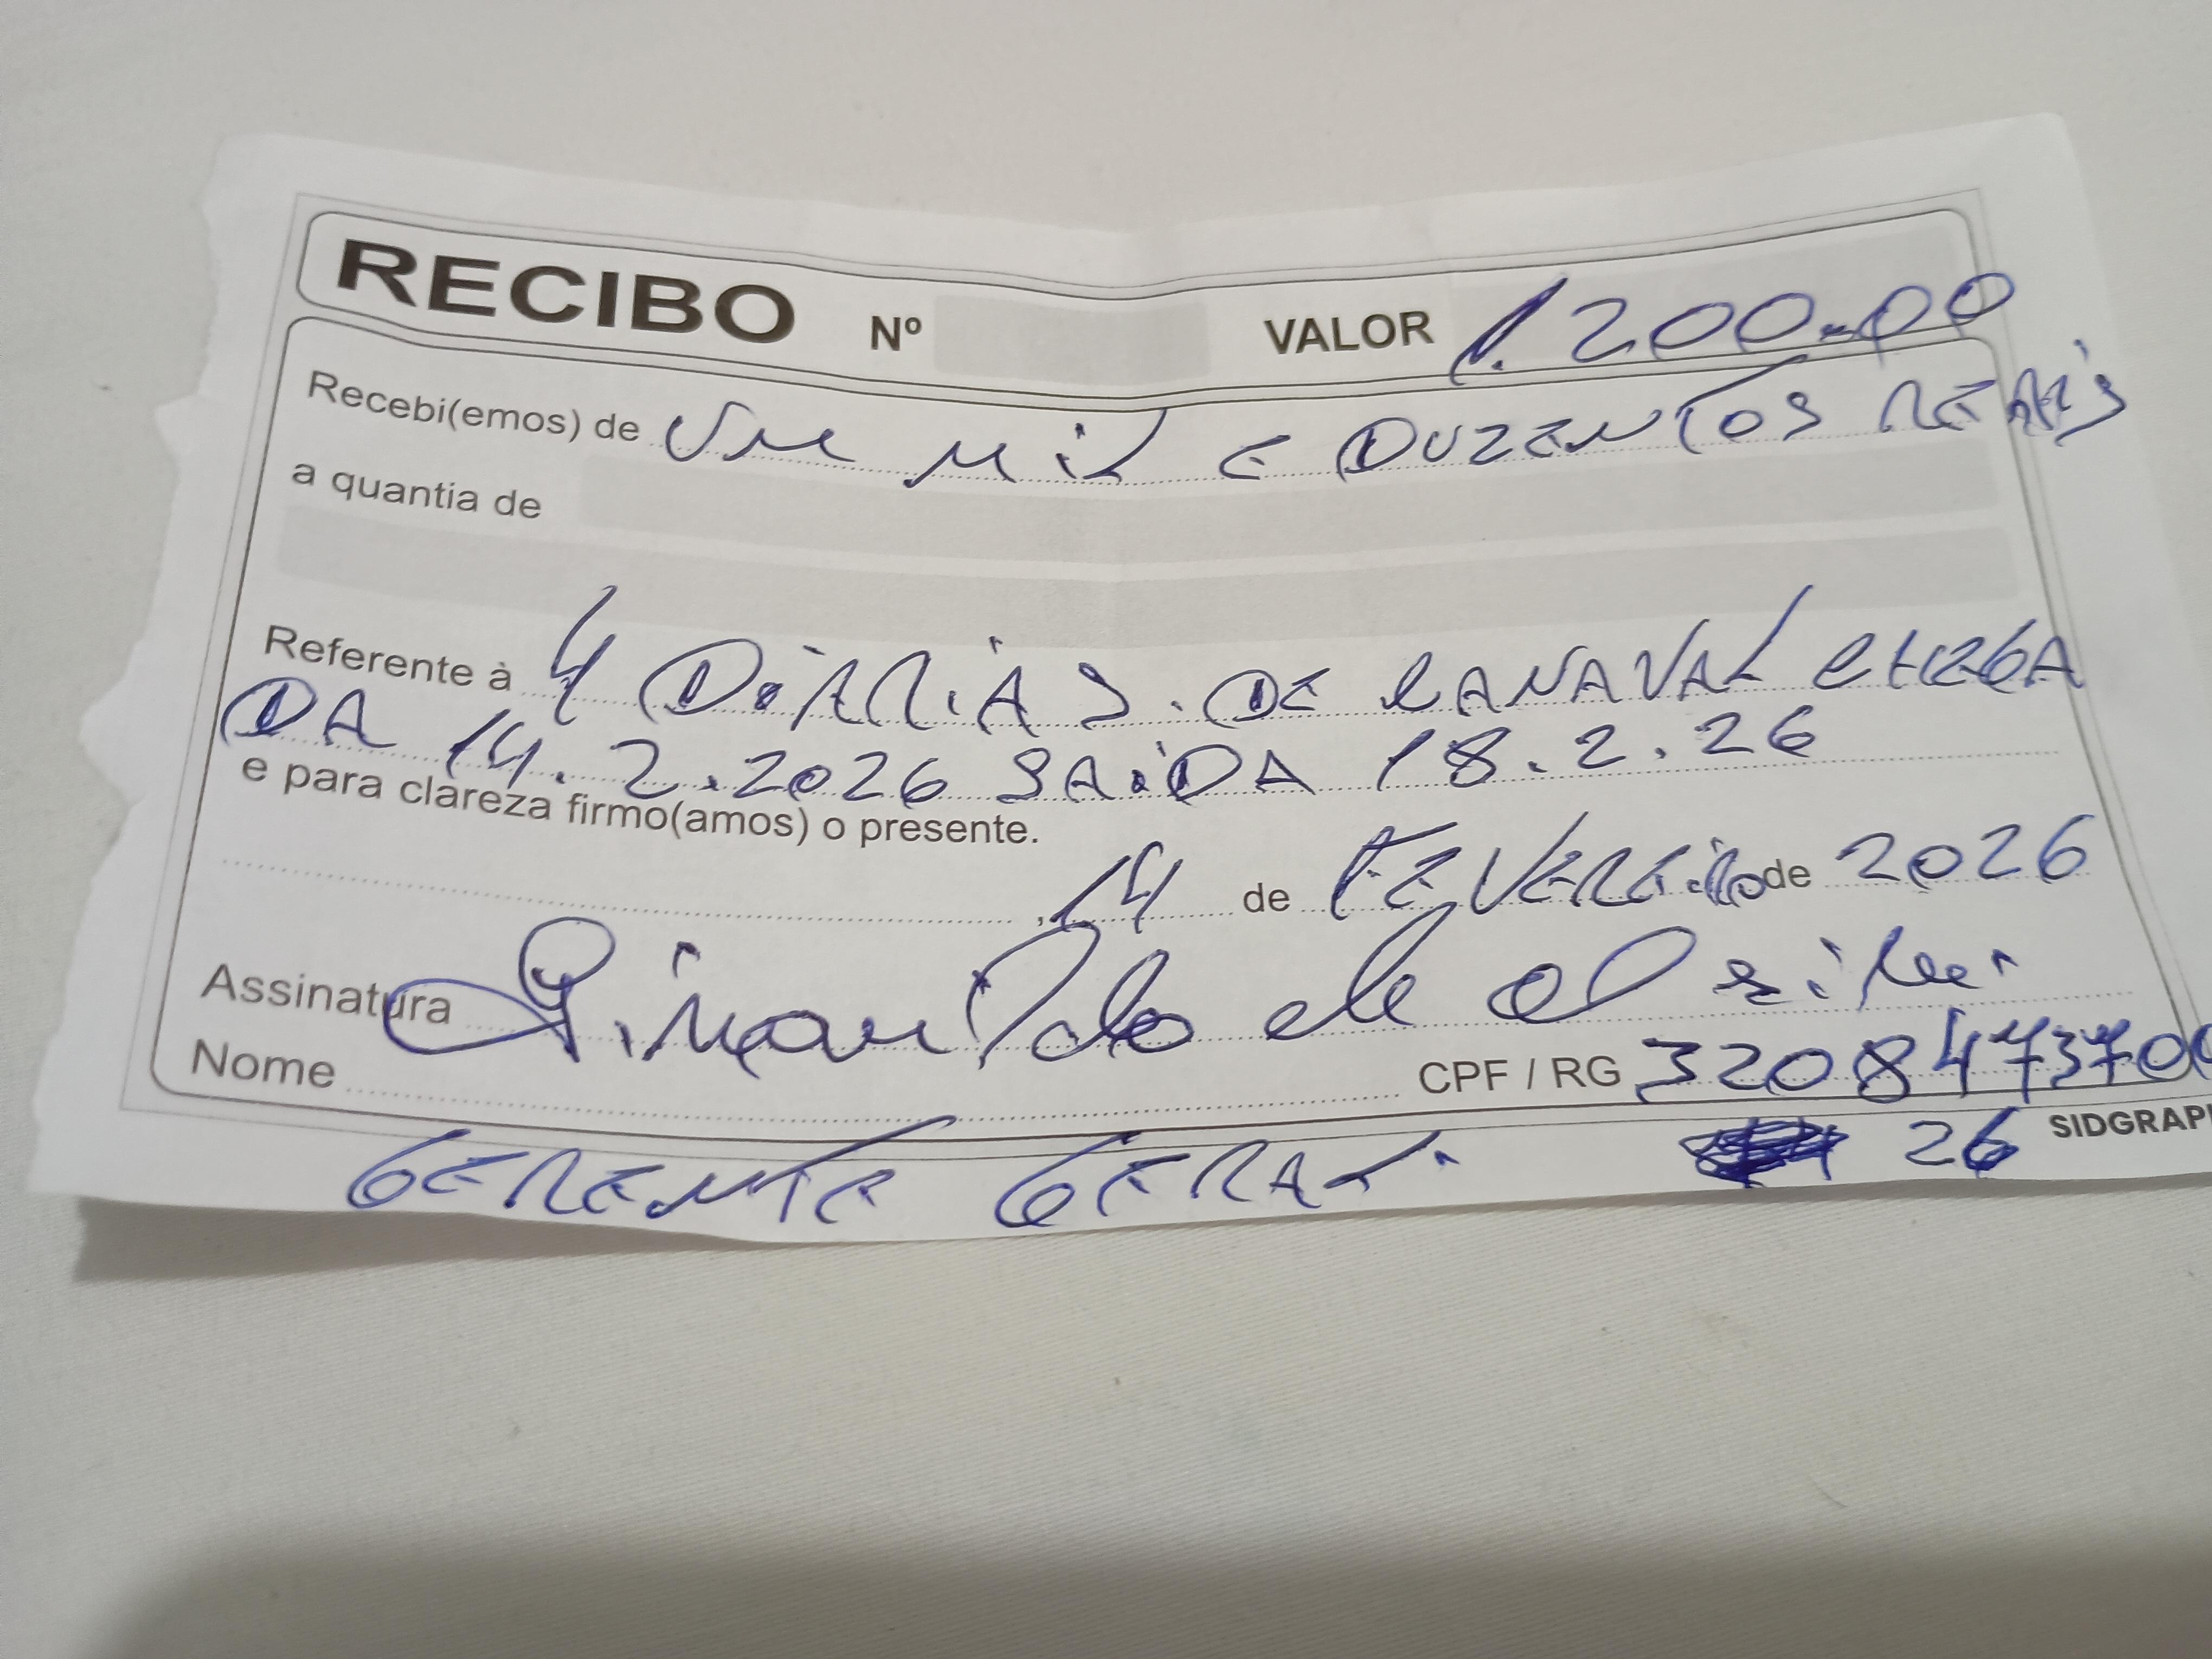 RECIBO Nº VALOR 1.200.00
Recebi(emos) de Um Mil E DUZENTOS REAIS
a quantia de
Referente à 4 DiARiAS. DE CANAVAL CHEGA
DA 14.2.2026 SAiDA 18.2.26
e para clareza firmo(amos) o presente.
, 14 de FEVEREiRo de 2026
Assinatura de
Nome CPF / RG 3208473700
GERENTE GERAL. 26 SIDGRAP